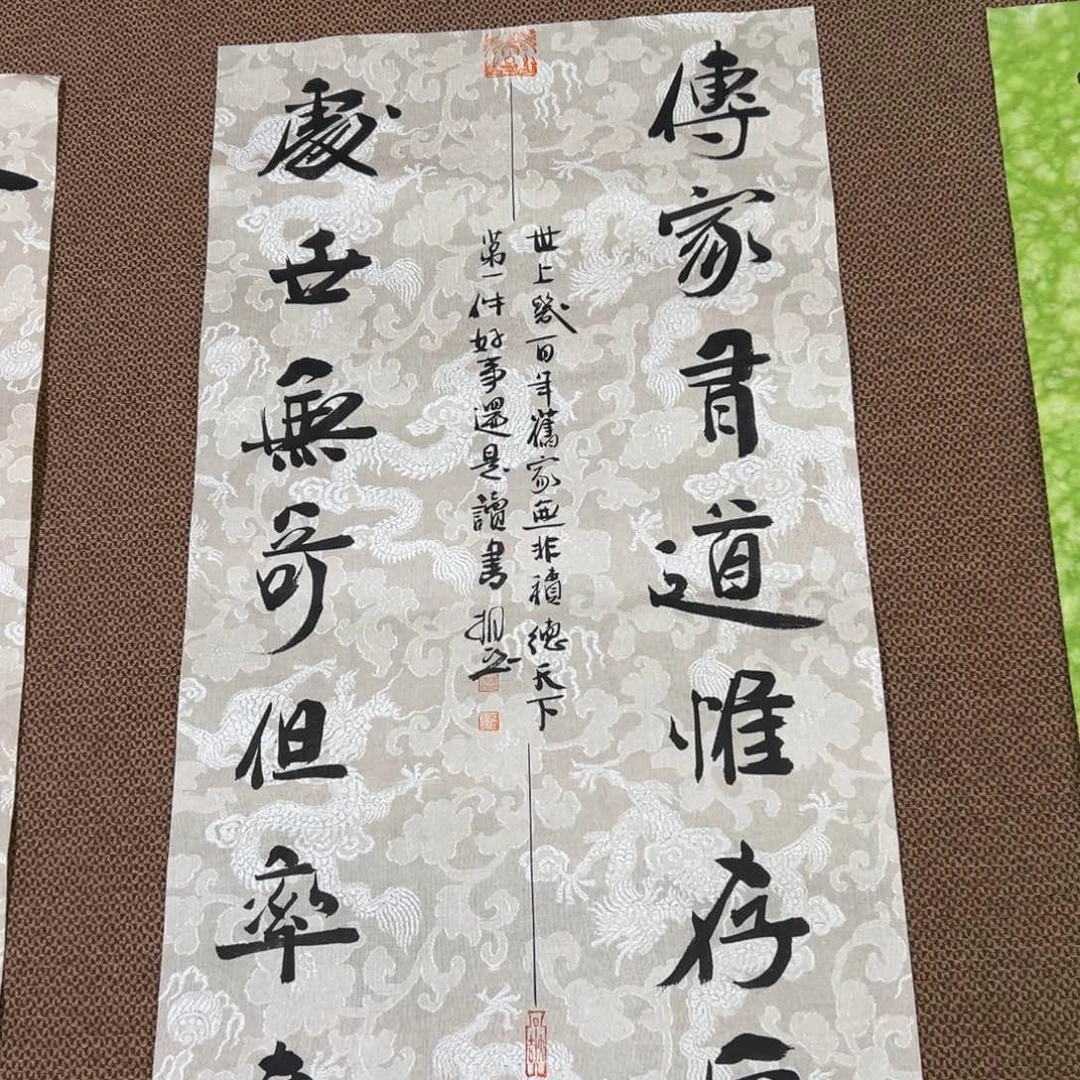 傳家有道惟存
世上幾百年舊家無非積德天下
第一件好事還是讀書
處世無奇但率